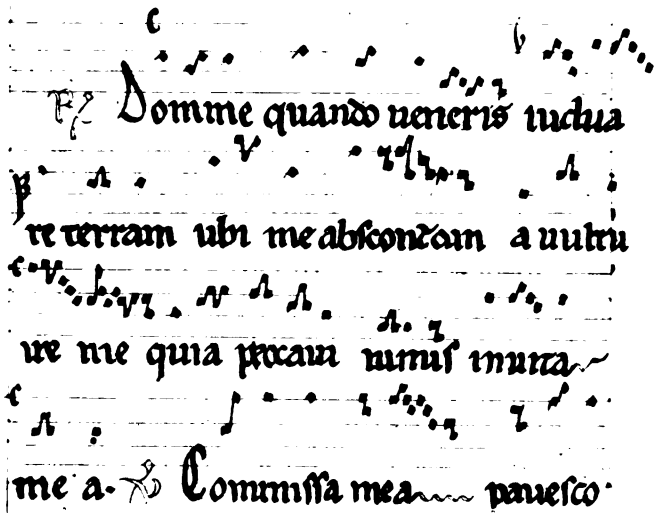 R Domine quando veneris iudica
re terram ubi me abscondam a vultu
ire me quia peccavi nimis in vita
mea. V Commissa mea pavesco.